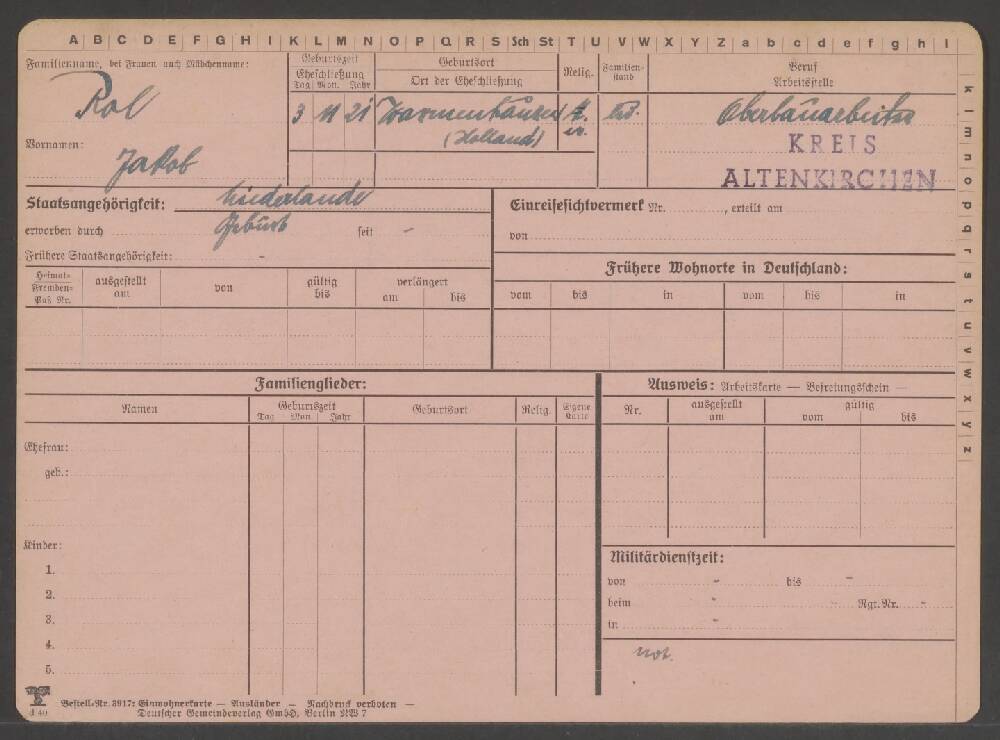 A B C D E F G H I K L M N O P Q R S Sch St T U V W X Y Z a b c d e f g h i
k l m n o p q r s t u v w x y z
Familienname, bei Frauen auch Mädchenname:
Rol
Vornamen:
Jakob
Geburtszeit
Eheschließung
Tag Mon. Jahr
3 11 21
Geburtsort
Ort der Eheschließung
Warmenhuizen
(Holland)
Relig.
Familienstand
Beruf
Arbeitsstelle
Oberbauarbeiter
KREIS
ALTENKIRCHEN
Staatsangehörigkeit: Niederlande
erworben durch Geburt seit -
Frühere Staatsangehörigkeit: -
Einreisesichtvermerk Nr. , erteilt am
von
Heimat-
Fremden-
Paß Nr.
ausgestellt
am
von
gültig
bis
verlängert
am bis
Frühere Wohnorte in Deutschland:
vom bis in vom bis in
Familienglieder:
Namen
Geburtszeit
Tag Mon Jahr
Geburtsort
Relig.
Eigene
Karte
Ehefrau:
geb.:
Kinder:
1.
2.
3.
4.
5.
Ausweis: Arbeitskarte — Befreiungsschein —
Nr.
ausgestellt
am
gültig
vom bis
Militärdienstzeit:
von - bis -
beim - Rgt. Nr. -
in -
Bestell-Nr. 3917: Einwohnerkarte — Ausländer — Nachdruck verboten —
Deutscher Gemeindeverlag GmbH, Berlin NW 7